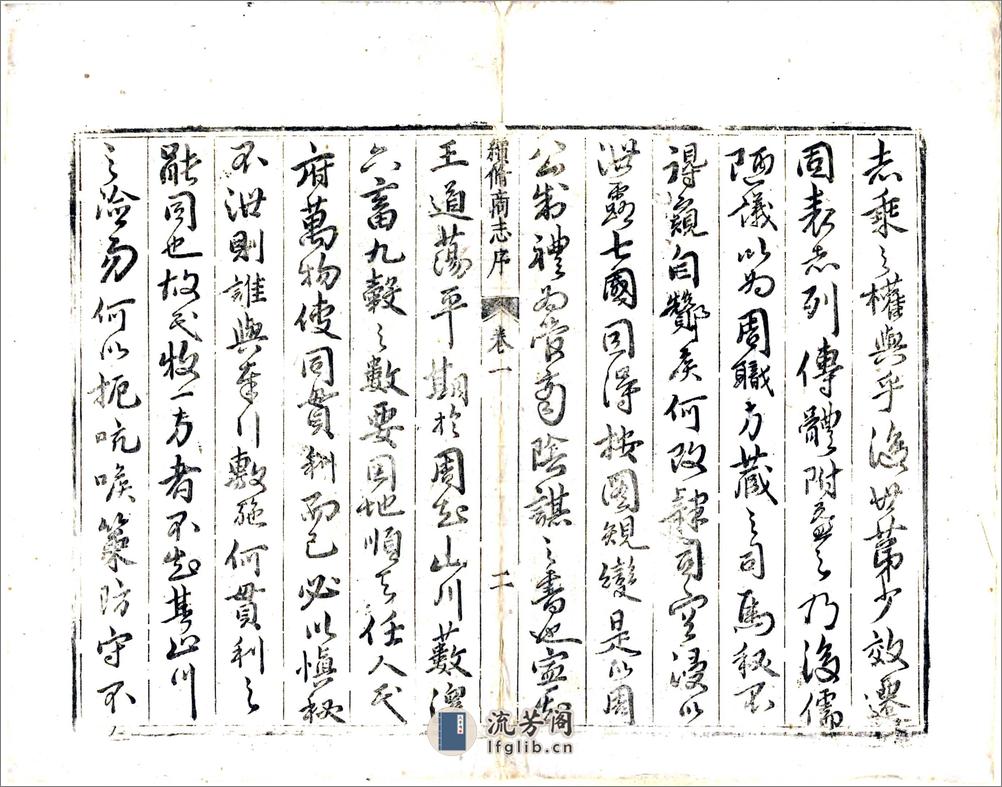 志乘之權輿乎後世第少效遷
固表志列傳體附益之乃後儒
陋議以為周職方藏之司馬秘不
得窺自酇侯何改隸司空浸以
泄露七國因得按圖規變是以周
公制禮為管商陰謀之書也寧知
續脩商志序 卷一 二
王道蕩平期於周知山川藪澤
六畜九穀之數要因地順天任人民
府萬物使同貫利而已必以慎秘
不泄則誰與奉行敷施何貫利之
能同也故民牧一方者不知其山川
之險易何以扼吭喉築防守不
流芳阁
lfglib.cn